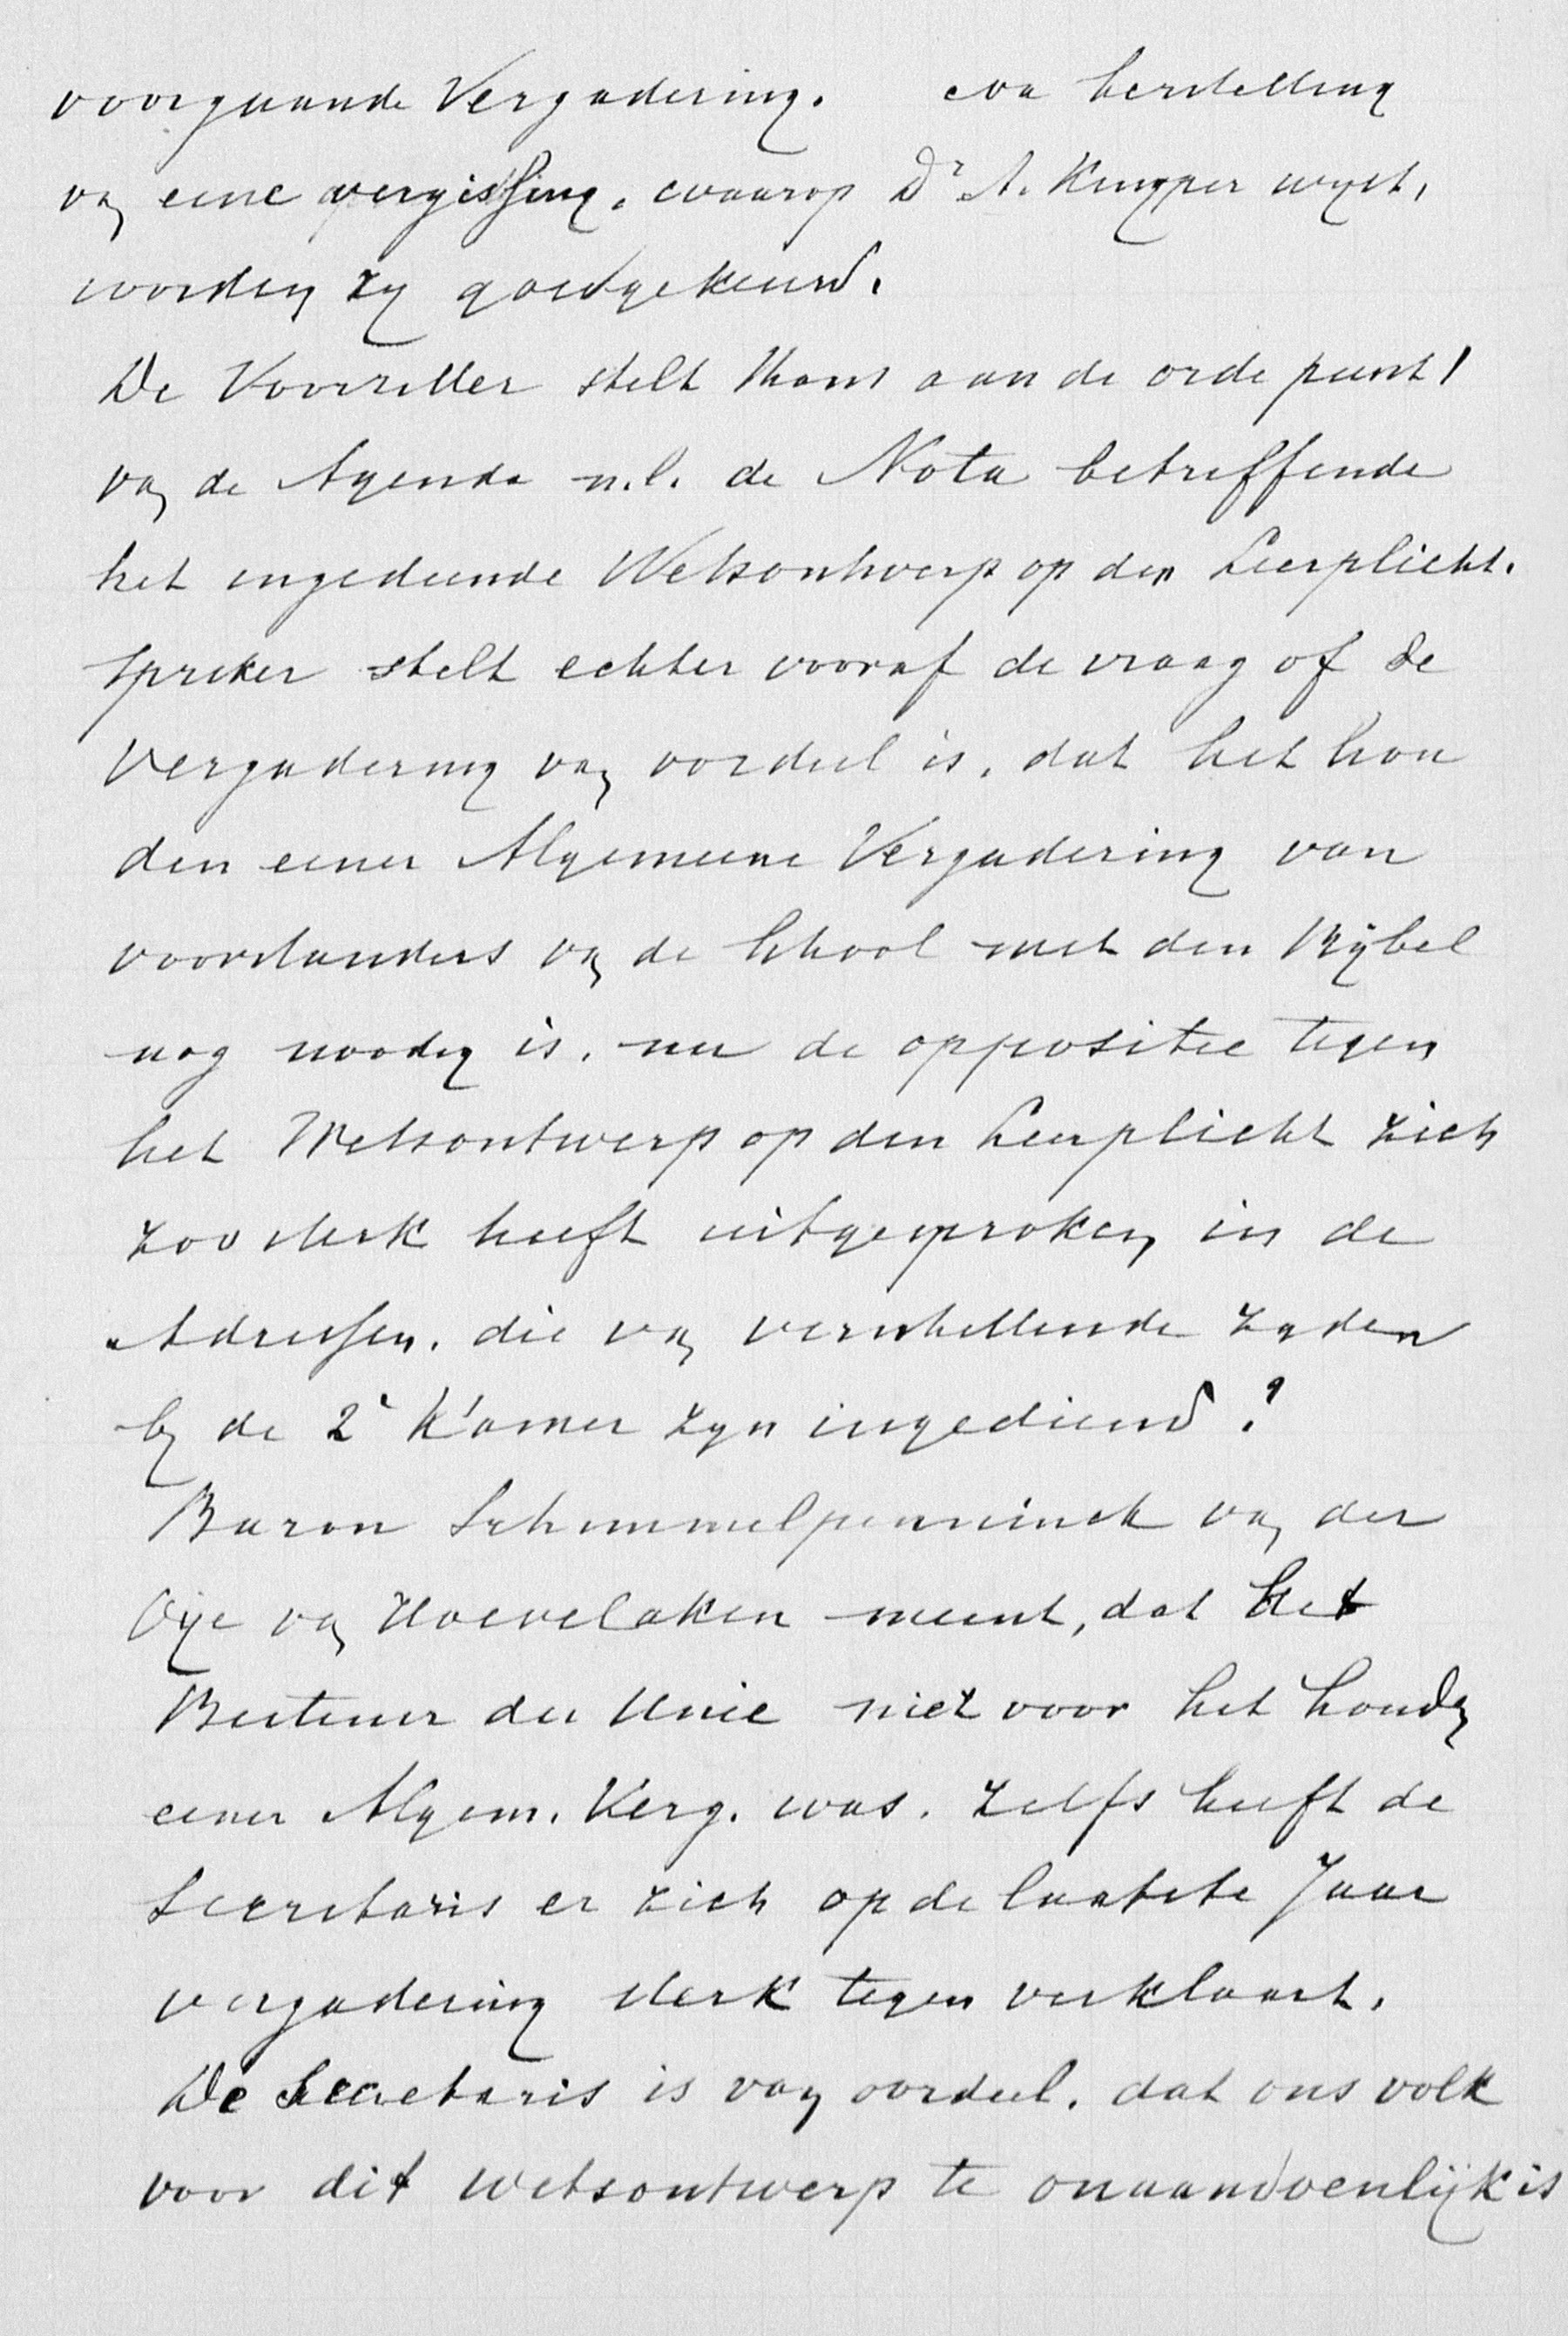 voorgaande Vergadering. na herstelling
van eene vergissing, waarop Dr A. Kuyper wijst,
worden zij goedgekeurd.
De Voorzitter stelt thans aan de orde punt 1
van de Agenda n.l. de Nota betreffende
het ingediende Wetsontwerp op den Leerplicht.
Spreker stelt echter vooraf de vraag of de
Vergadering van oordeel is, dat het hou
den eener Algemeene Vergadering van
voorstanders van de School met den Bijbel
nog noodig is, nu de oppositie tegen
het Wetsontwerp op den Leerplicht zich
zoo sterk heeft uitgesproken in de
Adressen, die van verschillende zijden
bij de 2e Kamer zijn ingediend?
Baron Schimmelpenninck van der
Oije van Hoevelaken meent, dat het
Bestuur der Unie niet voor het houden
eener Algem. Verg. was. Zelfs heeft de
Secretaris er zich op de laatste Jaar
vergadering sterk tegen verklaart.
De Secretaris is van oordeel, dat ons volk
voor dit wetsontwerp te onaandoenlijk is